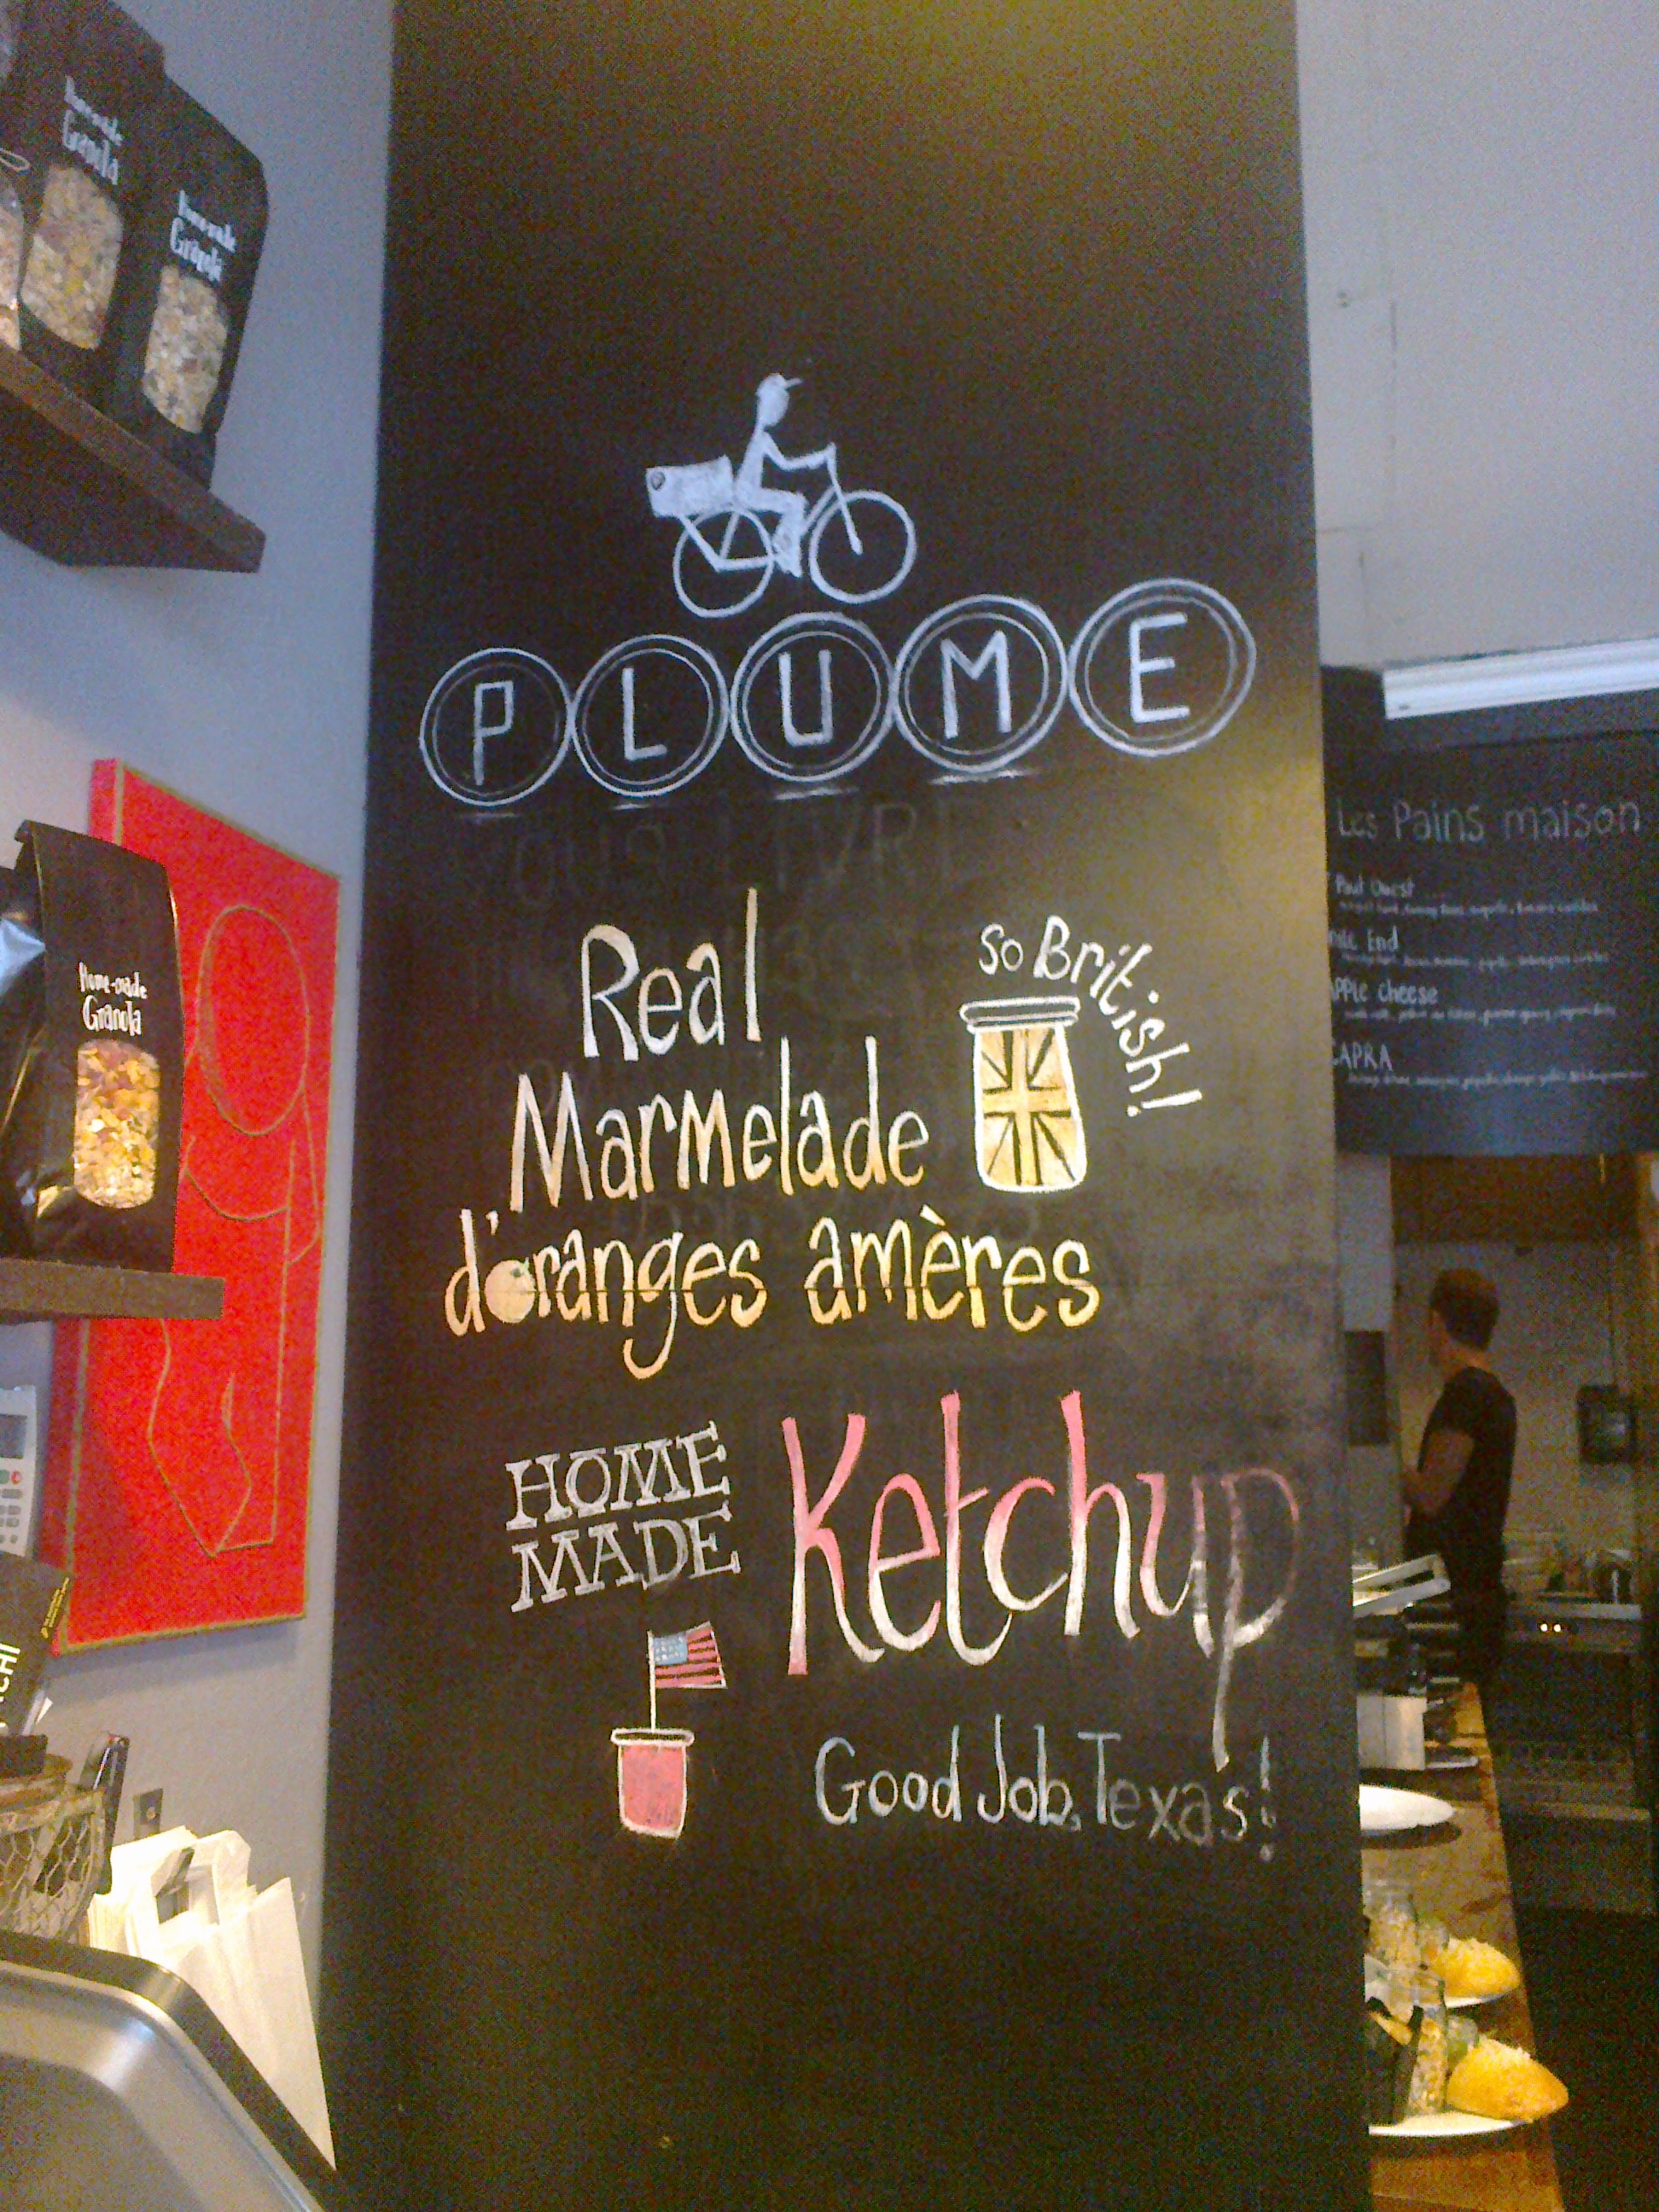 Home-made
Granola
Home-made
Granola
Home-made
Granola
PLUME
Real
Marmelade
d'oranges amères
So British!
HOME
MADE
Ketchup
Good Job, Texas!
Les Pains maison
End
Apple cheese
CAPRA